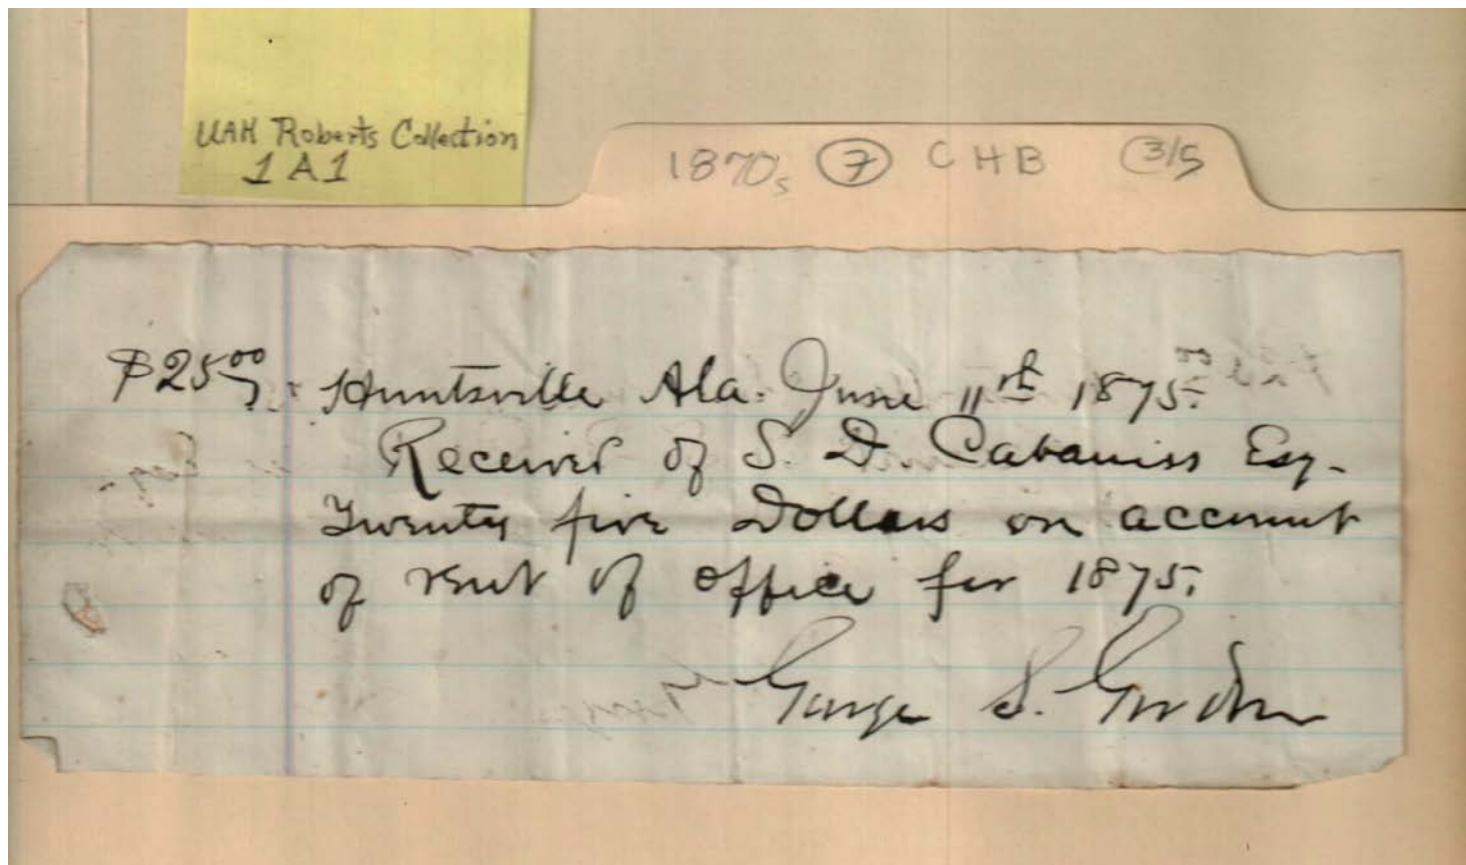 UAH Roberts Collection
1A1
1870s 7 CHB 3/5
$25.00 Huntsville Ala. June 11th 1875.
Received of S. D. Cabaniss Esq.
Twenty five Dollars on account
of rent of office for 1875.
George S. Gordon